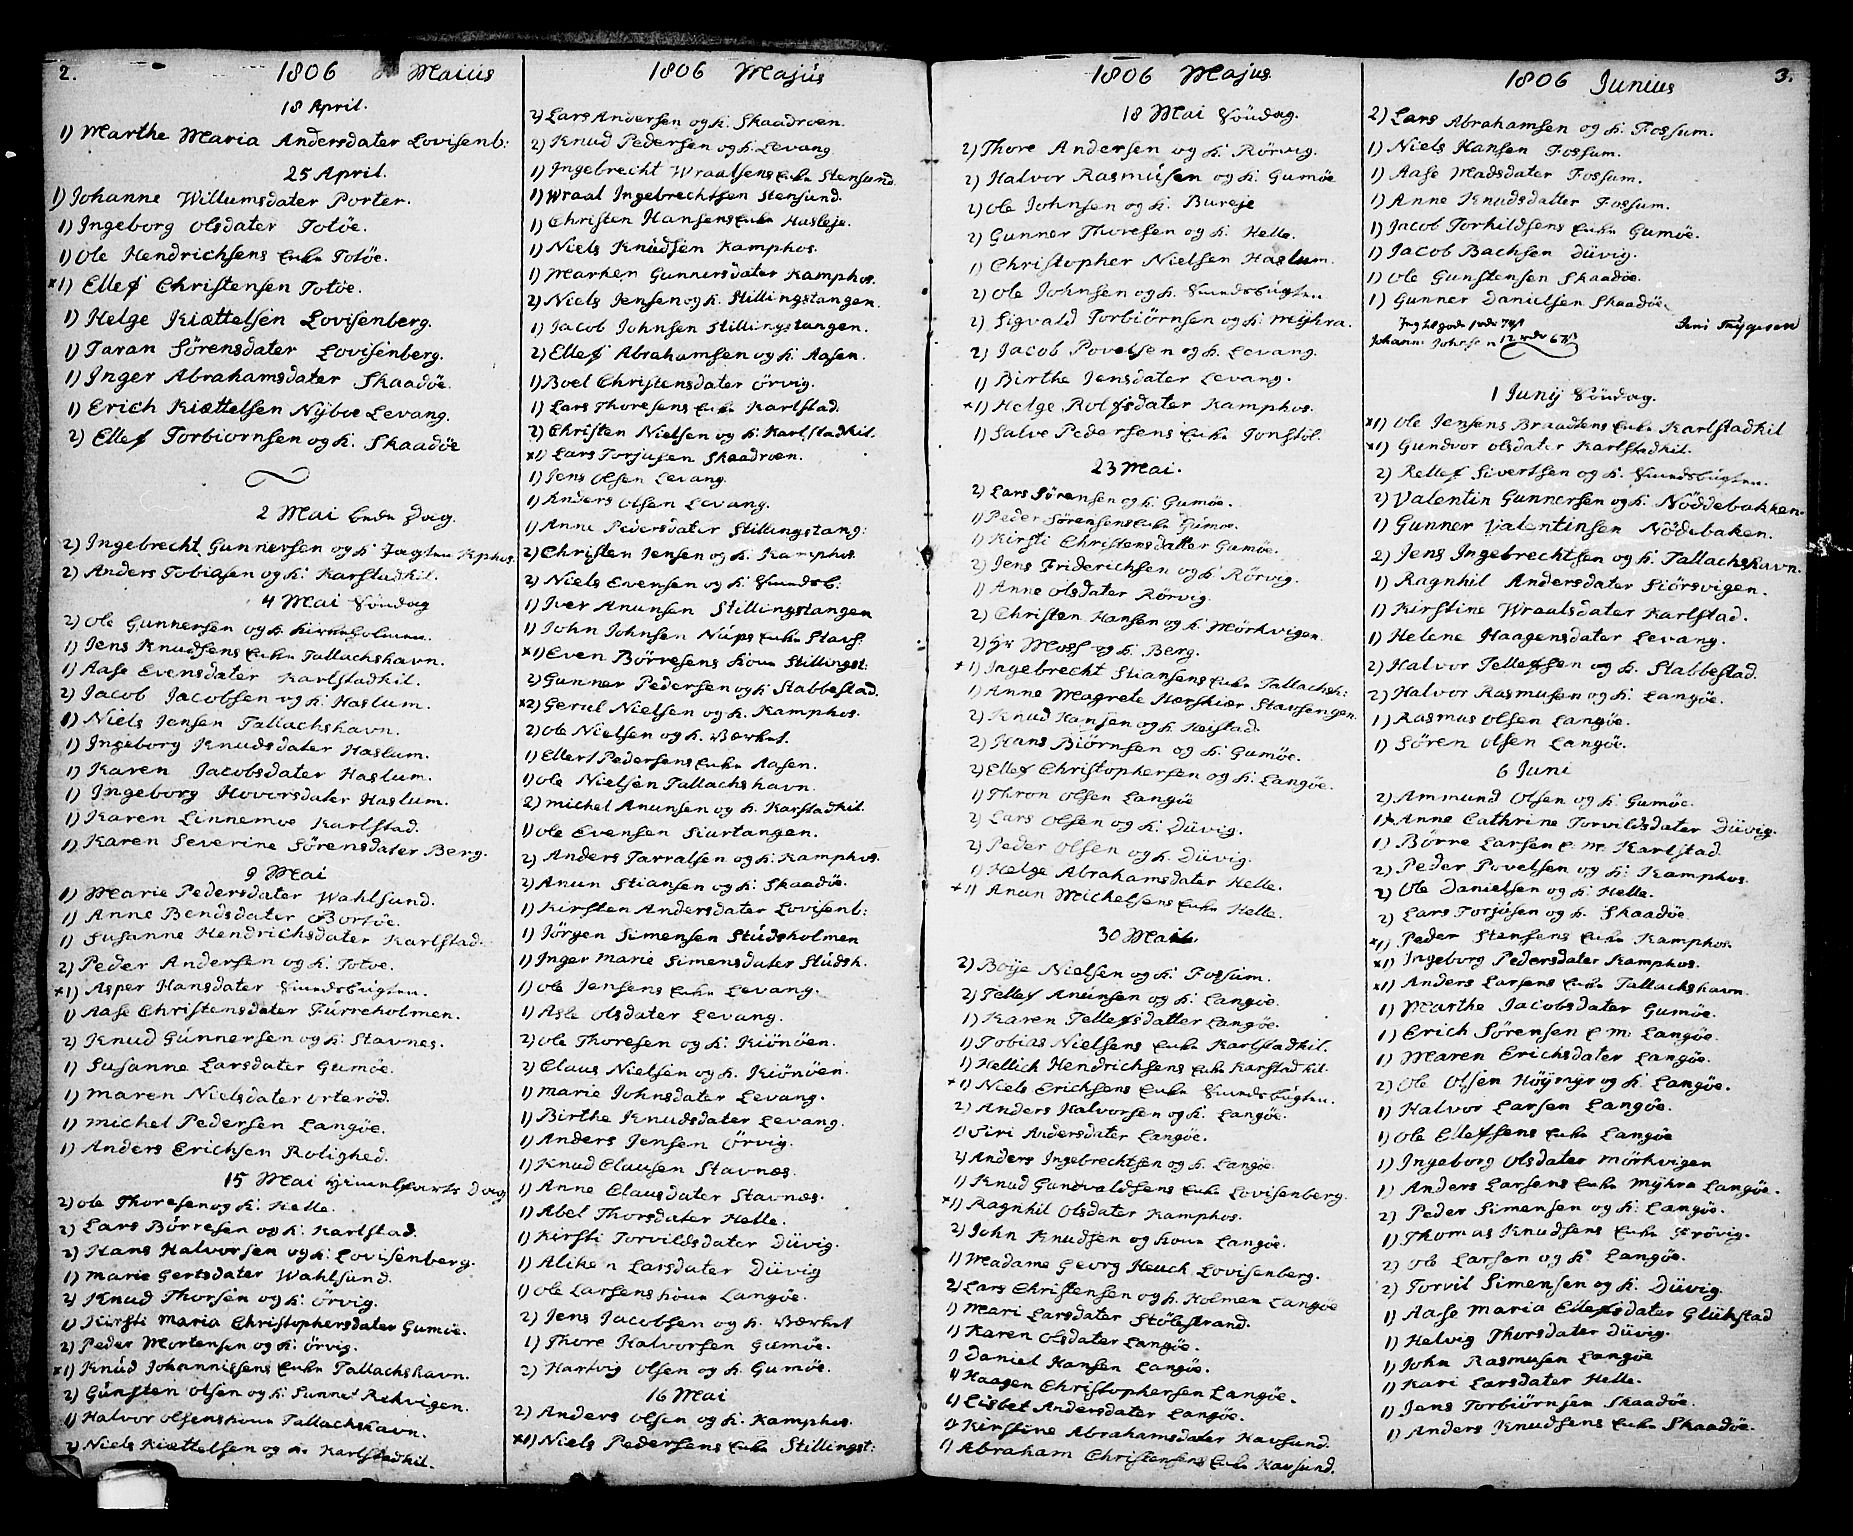 2.
1806 Maius
18 April.
1) Marthe Maria Andersdater Lovisenb:
25 April.
1) Johanne Willumsdater Porter.
1) Ingeborg Olsdater Totøe.
1) Ole Hendrichsens Enke Totøe.
*1) Ellef Christensen Totøe.
1) Helge Kiættelsen Lovisenberg.
1) Taran Sørensdater Lovisenberg.
1) Inger Abrahamsdater Skaadøe.
1) Erich Kiættelsen Nyboe Levang.
2) Ellef Torbiornsen og K. Skaadøe
2 Mai Bede Dag.
2) Ingebrecht Gunnersen og K. Jagten Kphos.
2) Anders Tobiasen og K: Karlstadkil.
4 Mai Søndag
2) Ole Gunnersen og K. Kirkeholmen.
1) Jens Knudsens Enke Tallachshavn.
1) Aase Evensdater Karlstadkil.
2) Jacob Jacobsen og K. Haslum.
1) Niels Jensen Tallachshavn.
1) Ingeborg Knudsdater Haslum.
1) Karen Jacobsdater Haslum.
1) Ingeborg Hovorsdater Haslum.
1) Karen Linnemoe Karlstad.
1) Karen Severine Sørensdater Berg.
9 Mai
1) Marie Pedersdater Wahlsund.
1) Anne Bendsdater Bortøe.
1) Susanne Hendrichsdater Karlstad.
2) Peder Andersen og K: Totøe.
*1) Asper Hansdater Sundsbugten.
1) Aase Christensdater Furreholmen.
2) Knud Gunnersen og K: Stavnes.
1) Susanne Larsdater Gumøe.
1) Maren Nielsdater Orterød.
1) Michel Pedersen Langøe.
1) Anders Erichsen Rolighed.
15 Mai Himmelfarts Dag
2) Ole Thoresen og K: Helle.
2) Lars Børresen og K: Karlstad.
2) Hans Halvorsen og K: Lovisenberg.
1) Marie Gertsdater Wahlsund.
2) Knud Thorsen og K: Ørvig.
1) Kirsti Maria Christophersdater Gumøe.
2) Peder Mortensen og K: Ørvig.
*1) Knud Johannissens Enke Tallachshavn.
2) Gunsten Olsen og K: Sunnet Rekvigen.
1) Halvor Olsens Kone Tallachshavn.
2) Niels Kiættelsen og K. Karlstadkil.
1806 Majus
2) Lars Andersen og K. Skaadroen.
2) Knud Pedersen og K. Levang
1) Ingebrecht Wraalsens Enke Stensund.
1) Wraal Ingebrechtsen Stensund.
1) Christen Hansens Enke Hasleje.
1) Niels Knudsen Kamphos.
1) Marken Gunnersdater Kamphos.
2) Niels Jensen og K. Stillingstangen.
1) Jacob Johnsen Stillingstangen.
2) Ellef Abrahamsen og K. Aasen.
1) Boel Christensdater Ørvig.
1) Lars Thoresens Enke Karlstad.
2) Christen Nielsen og K. Karlstadkil.
*1) Lars Torjusen Skaadroen.
1) Jens Olsen Levang.
1) Anders Olsen Levang.
1) Anne Pedersdater Stillingstang:
2) Christen Jensen og K: Kamphos
2) Niels Evensen og K: Sundsb.
1) Iver Anunsen Stillingstangen
1) John Johnsen Nups Enke Stavs:
*1) Even Børresens Kone Stillingst:
2) Gunner Pedersen og K: Stabbestad.
*2) Gerul Nielsen og K. Kamphos.
2) Ole Nielsen og K. Værket.
1) Ellert Pedersens Enke Aasen.
1) Ole Nielsen Tallachshavn.
2) Michel Anunsen og K. Karstadkil.
1) Ole Evensen Siurtangen.
2) Anders Tarralsen og K: Kamphos.
2) Anun Stiansen og K: Skaadøe.
1) Kirsten Andersdater Lovisenb:
1) Jørgen Simensen Studsholmen
1) Inger Marie Simensdater Studsh.
1) Ole Jensens Enke Levang.
1) Asle Olsdater Levang.
2) Ole Thoresen og K: Kiönöen.
2) Claus Nielsen og K. Kiönöen.
1) Marie Johnsdater Levang.
1) Birthe Knudsdater Levang.
1) Anders Jensen Ørvig.
1) Knud Clausen Stavnæs.
1) Anne Clausdater Stavnæs.
1) Abel Thorsdater Helle.
1) Kirsti Torvildsdater Düvig.
1) Aliken Larsdater Düvig
1) Ole Larsens Kone Langøe.
2) Jens Jacobsen og K. Værket
1) Thore Halvorsen Gumøe.
2) Hartvig Olsen og K. Gumöe.
16 Mai
2) Anders Olsen og K. Kamphos.
*1) Niels Pedersens Enke Stillingst:
1806 Majus
18 Mai Søndag.
2) Thore Andersen og K: Rörvig.
2) Halvor Rasmusen og K: Gumöe
2) Ole Johnsen og K. Bureje
2) Gunner Thoresen og K: Helle.
1) Christopher Nielsen Haslum.
2) Ole Johnsen og K: Sundsbugten
2) Sigvald Torbiörnsen og K: Mÿhra.
2) Jacob Povelsen og K. Levang.
1) Birthe Jensdater Levang.
*1) Helge Rolfsdater Kamphos.
1) Salve Pedersens Enke Jonstøl.
23 Mai.
2) Lars Sørensen og K: Gumøe.
1) Peder Sørensens Enke Gumøe.
1) Kirsti Christensdatter Gumøe.
2) Jens Friderichsen og K: Rörvig.
1) Anne Olsdater Rörvig.
2) Christen Hansen og K: Mörkvigen.
2) Hr Moss og K. Berg.
*1) Ingebrecht Stiansens Enke Tallachsh:
1) Anne Magrete Herskiær Stavsengen.
2) Knud Hansen og K. Heistad.
2) Hans Biörnsen og K: Gumöe.
2) Ellef Christophersen og K: Langöe.
1) Thron Olsen Langöe
2) Lars Olsen og K: Düvig.
2) Peder Olsen og K. Düvig.
1) Helge Abrahamsdater Helle.
*1) Anun Michelsens Enke Helle.
30 Maii.
2) Boÿe Nielsen og K: Fossum.
2) Tellef Anunsen og K. Langöe.
1) Karen Tellefsdatter Langöe.
1) Tobias Nielsens Enke Karlstadkil.
1) Hellich Hendrichsens Enke Karstadkil.
*1) Niels Erichsens Enke Sundsbugten.
2) Anders Halvorsen og K. Langöe.
1) Siri Andersdater Langöe.
2) Anders Ingebrechtsen og K. Langöe.
1) Knud Gundvaldsens Enke Lovisenberg.
*1) Ragnhil Olsdater Kamphos.
2) John Knudsen og Kone Langöe.
1) Madame Georg Heuch Lovisenberg.
2) Lars Christensen og K. Holmen Langöe
1) Mari Larsdater Stölestrand.
1) Karen Olsdater Langöe.
1) Daniel Hansen Langöe.
1) Haagen Christophersen Langöe.
1) Lisbet Andersdater Langöe.
1) Kirstine Abrahamsdater Havsund.
1) Abraham Christensens Enke Havsund.
1806 Junius
3.
2) Lars Abrahamsen og K: Fossum.
1) Niels Hansen Fossum.
1) Aase Madsdater Fossum.
1) Anne Knudsdatter Fossum.
1) Jacob Torkildsens Enke Gumøe.
1) Jacob Bachsen Düvig.
1) Ole Gunstensen Skaadøe.
1) Gunner Danielsen Skaadøe.
Johann Johnsen
1 Junÿ Söndag.
*1) Ole Jensens Braadtens Enke Karlstadkil
*1) Gundvor Olsdater Karlstadkil.
2) Rellef Sivertsen og K: Sundsbugten.
2) Valentin Gunnersen og K: Nöddebakken.
1) Gunner Valentinsen Nöddebaken.
2) Jens Ingebrechtsen og K: Tallachshavn.
1) Ragnhil Andersdater Siörsvigen.
1) Kirstine Wraalsdater Karlstad.
1) Helene Haagensdater Levang.
2) Halvor Tellefsen og K: Stabbestad.
2) Halvor Rasmusen og K: Langöe.
1) Rasmus Olsen Langöe.
1) Sören Olsen Langöe.
6 Juni
2) Ammund Olsen og K: Gumøe.
1* Anne Cathrine Torvildsdater Düvig.
1) Børre Larsen E. M. Karlstad
2) Peder Povelsen og K: Kamphos.
2) Ole Danielsen og K: Helle.
2) Lars Torjusen og K. Skaadøe
*1) Peder Stensens Enke Kamphos.
*1) Ingeborg Pedersdater Kamphos.
*1) Anders Larsens Enke Tallachshavn.
1) Marthe Jacobsdater Gumöe.
1) Erich Sörensen E. M. Langöe.
1) Maren Erichsdater Langöe.
2) Ole Olsen Höymyr og K: Langöe.
1) Halvor Larsen Langöe.
1) Ole Ellefsens Enke Langöe
1) Ingeborg Olsdater Mörkvigen
1) Anders Larsens Enke Mÿhra Langöe.
2) Peder Simensen og K: Langöe.
1) Thomas Knudsens Enke Frövig.
2) Ole Larsen og K: Langöe.
2) Torvil Simensen og K: Düvig.
1) Aase Maria Ellefsdater Glükstad
1) Helvig Thorsdater Düvig.
1) John Rasmusen Langöe
1) Kari Larsdater Helle.
1) Jens Torbiörnsen Skaadöe.
1) Anders Knudsens Enke Skaadöe.